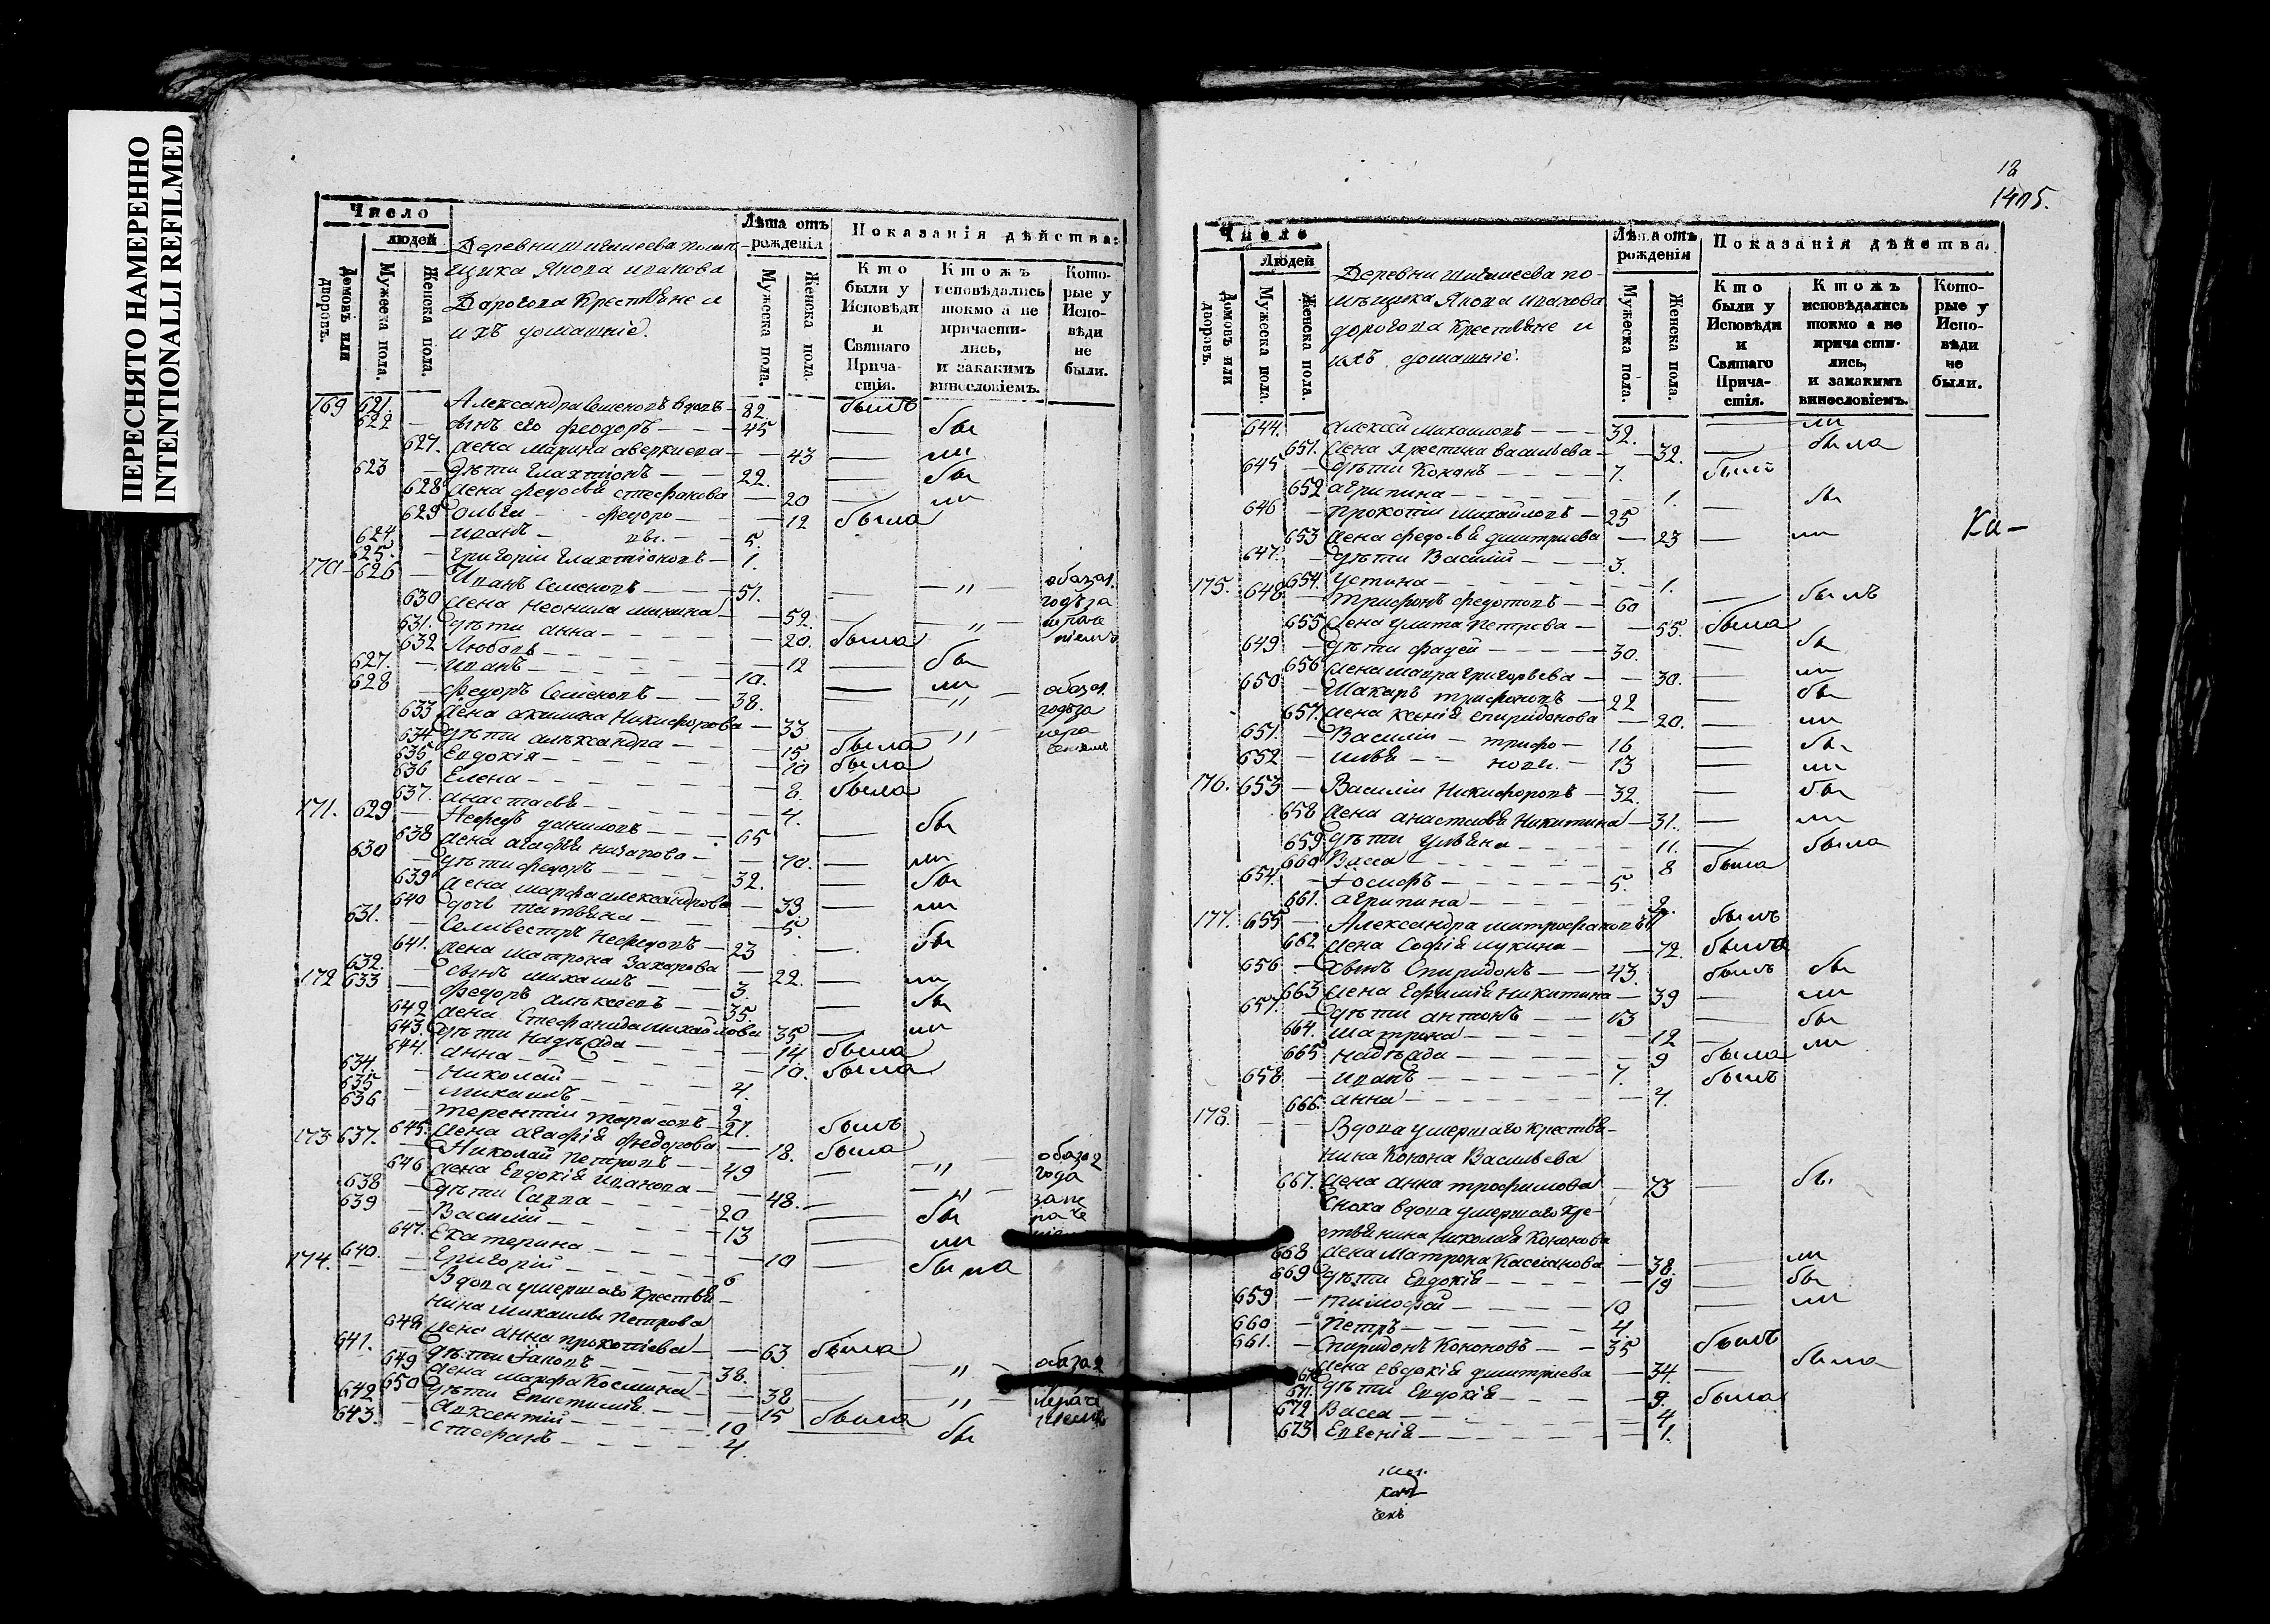 ПЕРЕСНЯТО НАМЕРЕННО
INTENTIONALLI REFILMED
Число
людей
Домовъ или дворовъ.
Мужеска пола.
Женска пола.
Деревни Шигилеева помѣ-
щика Якова Иванова
Дарогова Крестьяне и
ихъ домашніе.
Лѣта отъ рожденія
Мужеска пола.
Женска пола.
Показанія дѣйства:
Кто были у Исповѣди и Святаго Прича-стія.
Ктожъ исповѣдались токмо а не причасти-лись, и закакимъ винословіемъ.
Кото-рые у Испо-вѣди не были.
169 621. Александра Семеновъ вдовъ 82. былъ
622 сынъ его Феодоръ 45 бы
627. Жена Марина Аверкиева 43 ли
623 Дѣти Галахтіонъ 22. бы
628 Жена Федосья Стефанова 20 ли
629 Ольга Федоро 12 была
624 Иванъ вы. 5
625. Григорій Галахтіоновъ 1.
170 626 Иванъ Семеновъ 51. "
630 Жена Неонила Минина 52. "
631. Дѣти Анна 20. была
632 Любовь 12 бы
627. Иванъ 10. ли
628 Федоръ Семеновъ 38. "
633 Жена Акилина Никифорова 33 "
634 Дѣти Алѣксандра 15. была
635 Евдокія 10 была
636 Елена 8. была
637. Анастасья 4.
171. 629 Нефедъ Даниловъ 65 бы
638 Жена Агафья Назарова 70. ли
630 Дѣти Федоръ 32. бы
639 Жена Марфа Александрова 33. ли
640 Дочь Татьяна 5.
631. Селивестръ Нефедовъ 23 бы
641. Жена Матрона Захарова 22. ли
632. Сынъ Михаилъ 3.
172 633 Федоръ Алѣксеевъ 35. бы
642 Жена Стефанида Михайлова 35 ли
643. Дѣти Надѣжда 14 была
644. Анна 10. была
634. Николай 4.
635 Михаилъ 2
636 Терентій Тарасовъ 27. былъ
645. Жена Агафія Федорова 18. была
173 637. Николай Петровъ 49 "
646 Жена Евдокія Иванова 48. "
638 Дѣти Савва 20 бы
639 Василій 13 ли
647. Екатерина 10 была
640. Григорій 6
174. Вдова умершаго Крестья-
нина Михаила Петрова
648 Жена Анна Прокопіева 63 была
641. Дѣти Іаковъ 38. "
649 Жена Марфа Космина 38 "
650 Дѣти Епистимія 15 была
642 Авксентій 10 бы
643. Стефанъ 4.
12
1405.
Число
Людей
Домовъ или дворовъ.
Мужеска пола.
Женска пола.
Деревни Шигилеева по-
мѣщика Якова Иванова
дорогова Крестьяне и
ихъ домашніе.
Лѣта отъ рожденія
Мужеска пола.
Женска пола.
Показанія дѣйства.
Кто были у Исповѣди и Святаго Прича-стія.
Ктожъ исповѣдались токмо а не прича сти-лись, и закакимъ винословіемъ.
Кото-рые у Испо-вѣди не были.
644. Алексѣй Михаиловъ 32. ли
651. Жена Христина Васильева 32. была
645 Дѣти Кононъ 7. былъ
652 Агрипина 1.
646 Прокопій Михайловъ 25 бы
653 Жена Федосья Дмитриева 23 ли
647. Дѣти Василій 3.
654. Устина 1.
175. 648 Трифонъ Федотовъ 60 былъ
655 Жена Улита Петрова 55. была
649 Дѣти Фадей 30. бы
656 Жена Мавра Григорьева 30. ли
650 Макаръ Трифоновъ 22 бы
657. Жена Ксенія Спиридонова 20. ли
651. Василій Трифо- 16 бы
652 Илья новы. 13 ли
176. 653 Василій Никифоровъ 32. бы
658 Жена Анастасья Никитина 31. ли
659 Дѣти Ульяна 11. была
660 Васса 8 была
654. Іосифъ 5.
661. Агрипина 2.
177. 655 Александра Митрофановъ былъ
662 Жена Софія Лукина 72. была
656 Сынъ Спиридонъ 43. былъ бы
663 Жена Ефимія Никитина 39 ли
657. Дѣти Антонъ 13 бы
664. Матрона 12 ли
665 Надѣжда 9 была
658 Иванъ 7. былъ
666. Анна 4.
178. Вдова умершаго Крестья-
нина Конона Васильева
667. Жена Анна Трофимова 73 бы
Сноха вдова умершаго Кре-
стьянина Николая Кононова
668 Жена Матрона Касіанова 38. ли
669 Дѣти Евдокія 19 бы
659 Тимофей 10 ли
660 Петръ 4
661. Спиридонъ Кононовъ 35 былъ
670 Жена Евдокія Дмитриева 34. была
671. Дѣти Евдокія 9. была
672 Васса 4
673 Евгенія 1.
Ка-